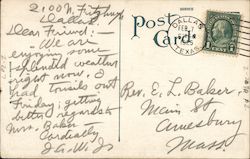 2100 N. Fitzhugh
Dallas
Dear Friend:-
We are
enjoying some
splendid weather
right now. I
had tonsils out
Friday; getting
better regards to
Mrs. Baker
Cordially
Post
Card
DALLAS
FEB
TEXAS
Rev. E. L. Baker,
Main St
Amesbury
Mass